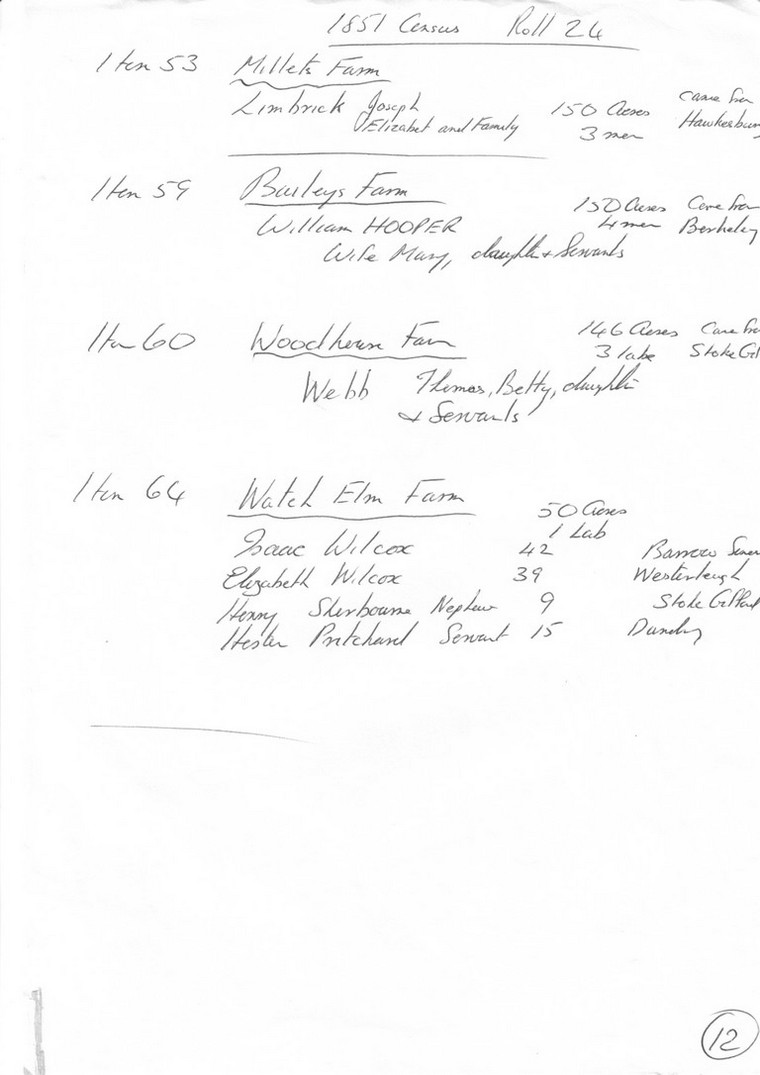 1851 Census Roll 24
Item 53 Millets Farm
Limbrick Joseph 150 Acres came from
Elizabet and Family 3 men Hawkesbur
Item 59 Baileys Farm
150 Acres Came from
William HOOPER 4 men Berkeley
Wife Mary, daughter + Servants
Item 60 Woodhouse Farm 146 Acres Came fro
3 labs Stoke Gif
Webb Thomas, Betty, daughter
& Servants
Item 64 Watch Elm Farm
50 Acres
1 Lab
Isaac Wilcox 42 Barrow
Elizabeth Wilcox 39 Westerleigh
Henry Sherbourne Nephew 9 Stoke Gifford
Hester Pritchard Servant 15
12